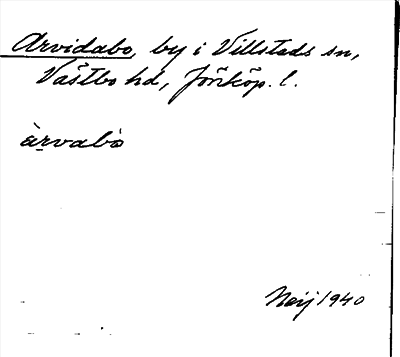 Arvidabo, by i Villstads sn,
Västbo hd, Jönköp. l.
àrvabò
Neij 1940